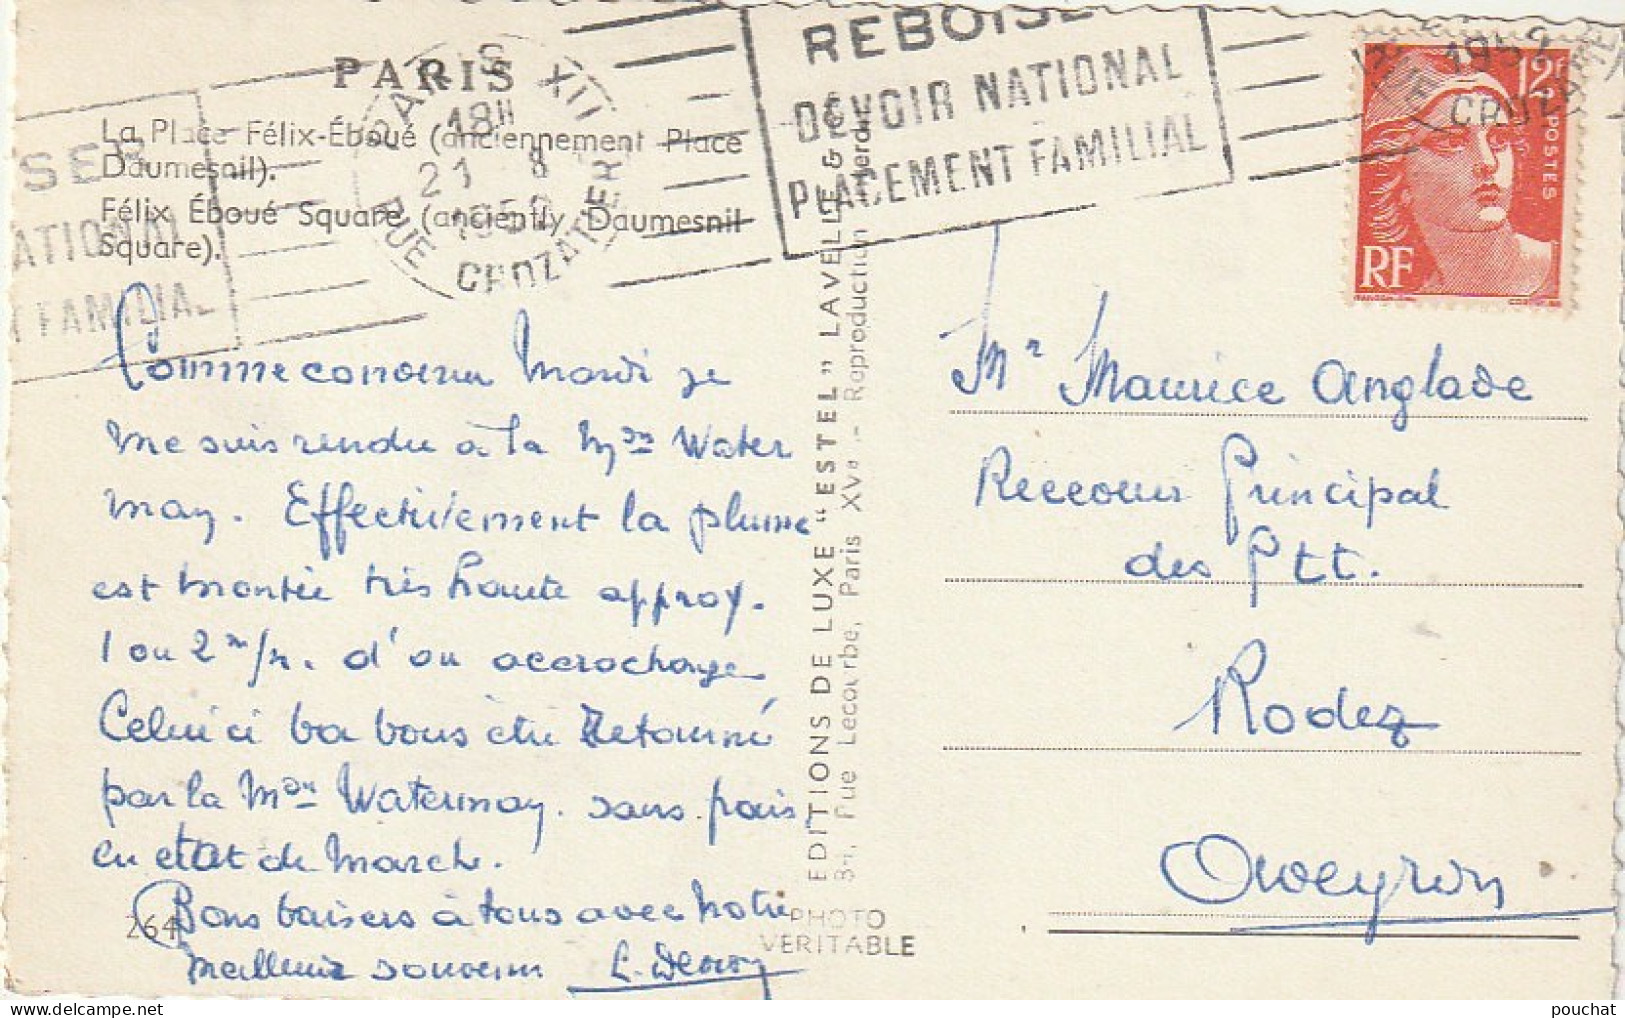 PARIS
La Place Félix-Éboué (anciennement Place
Daumesnil).
Félix Éboué Square (anciently Daumesnil
Square).
PARIS XII
18H
21 8
195
RUE CROZATIER
REBOISER
DEVOIR NATIONAL
PLACEMENT FAMILIAL
SER
ATIONAL
T FAMILIAL
1952
RUE CROZATIER
12F
POSTES
RF
Comme convenu Mardi je
me suis rendu à la Mson Water
may. Effectivement la plume
est montée très haute approx.
1 ou 2 m/m. d'ou accrochage
Celui ci va vous être Retourné
par la Mson Watermay. sans frais,
en etat de March.
Bons baisers à tous avec notre
meilleur souvenir
264
EDITIONS DE LUXE "ESTEL" LAVELLE &
Rue Lecourbe, Paris XVe - Reproduction
PHOTO
VERITABLE
Mr Maurice Anglade
Receveur Principal
des Ptt.
Rodez
Aveyron
pouchat